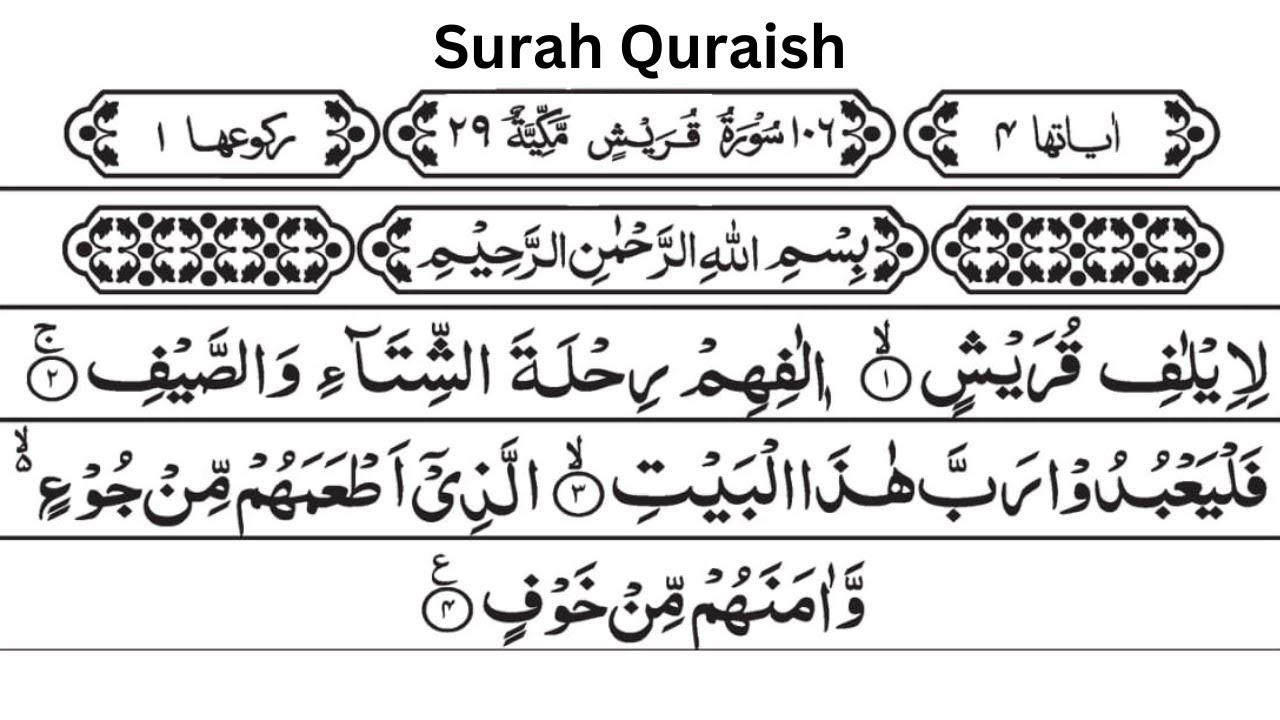 Surah Quraish
اٰیاتها ۴ ۱۰۶ سُوْرَةُ قُرَيْشٍ مَّكِّيَّةٌ ۲۹ رکوعها ۱
بِسْمِ اللّٰهِ الرَّحْمٰنِ الرَّحِيْمِ
لِاِيْلٰفِ قُرَيْشٍ ۙ﴿۱﴾ اٖلٰفِهِمْ رِحْلَةَ الشِّتَآءِ وَالصَّيْفِ ۚ﴿۲﴾
فَلْيَعْبُدُوْا رَبَّ هٰذَا الْبَيْتِ ۙ﴿۳﴾ الَّذِیْۤ اَطْعَمَهُمْ مِّنْ جُوْعٍ ۙ۵
وَّاٰمَنَهُمْ مِّنْ خَوْفٍ ﴿۴﴾ ع